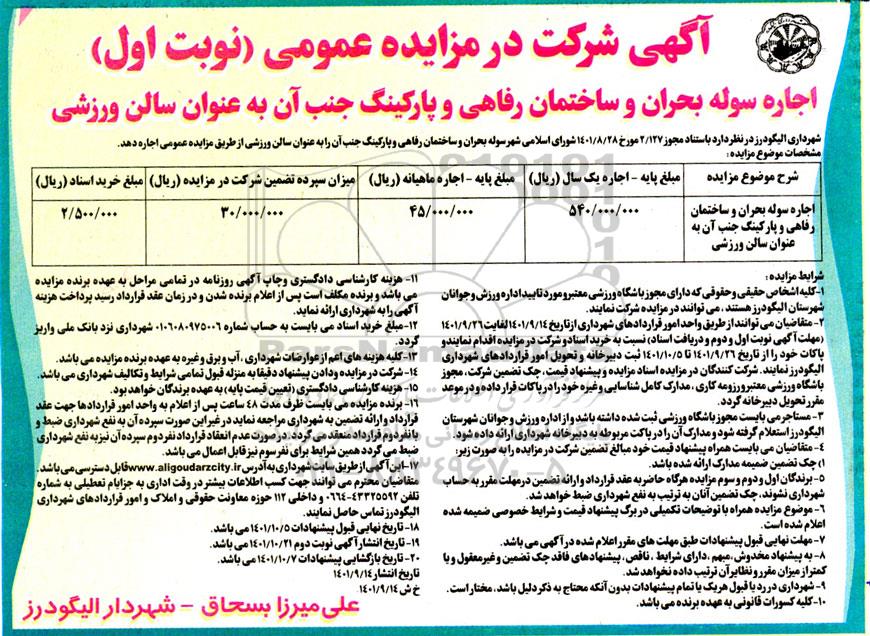 آگهی شرکت در مزایده عمومی (نوبت اول)
اجاره سوله بحران و ساختمان رفاهی و پارکینگ جنب آن به عنوان سالن ورزشی
شهرداری الیگودرز در نظر دارد باستناد مجوز ۲/۱۲۷ مورخ ۱۴۰۱/۸/۲۸ شورای اسلامی شهر سوله بحران و ساختمان رفاهی و پارکینگ جنب آن را به عنوان سالن ورزشی از طریق مزایده عمومی اجاره دهد.
مشخصات موضوع مزایده :
شرح موضوع مزایده
مبلغ پایه - اجاره یک سال (ریال)
مبلغ پایه - اجاره ماهیانه (ریال)
میزان سپرده تضمین شرکت در مزایده (ریال)
مبلغ خرید اسناد (ریال)
اجاره سوله بحران و ساختمان
رفاهی و پارکینگ جنب آن به
عنوان سالن ورزشی
۵۴۰/۰۰۰/۰۰۰
۴۵/۰۰۰/۰۰۰
۳۰/۰۰۰/۰۰۰
۲/۵۰۰/۰۰۰
شرایط مزایده :
۱-کلیه اشخاص حقیقی و حقوقی که دارای مجوز باشگاه ورزشی معتبر و مورد تایید اداره ورزش و جوانان
شهرستان الیگودرز هستند ، می توانند در مزایده شرکت نمایند.
۲- متقاضیان می توانند از طریق واحد امور قراردادهای شهرداری از تاریخ ۱۴۰۱/۹/۱۴ لغایت ۱۴۰۱/۹/۲۶
(مهلت آگهی نوبت اول و دوم و دریافت اسناد) نسبت به خرید اسناد و شرکت در مزایده اقدام نمایند و
پاکات خود را از تاریخ ۱۴۰۱/۹/۲۶ تا ۱۴۰۱/۱۰/۵ ثبت دبیرخانه و تحویل امور قراردادهای شهرداری
الیگودرز نمایند. شرکت کنندگان در مزایده اسناد مزایده و پیشنهاد قیمت، چک تضمین شرکت، مجوز
باشگاه ورزشی معتبر و رزومه کاری ، مدارک کامل شناسایی و غیره خود را در پاکات قرار داده و در موعد
مقرر تحویل دبیرخانه گردد.
۳- مستاجر می بایست مجوز باشگاه ورزشی ثبت شده داشته باشد و از اداره ورزش و جوانان شهرستان
الیگودرز استعلام گرفته شود و مدارک آن را در پاکت مربوطه به دبیرخانه شهرداری ارائه داده شود.
۴- متقاضیان می بایست همراه پیشنهاد قیمت خود مبالغ تضمین شرکت در مزایده را به صورت زیر:
۱) چک تضمین ضمیمه مدارک ارائه شده باشد
۵- برندگان اول و دوم و سوم مزایده هرگاه حاضر به عقد قرارداد و ارائه تضمین در مهلت مقرر به حساب
شهرداری نشوند، چک تضمین آنان به ترتیب به نفع شهرداری ضبط خواهد شد.
۶- موضوع مزایده همراه با توضیحات تکمیلی در برگ پیشنهاد قیمت و شرایط خصوصی ضمیمه شده
اعلام شده است.
۷- مهلت نهایی قبول پیشنهادات طبق مهلت های مقرر اعلام شده در آگهی می باشد.
۸- به پیشنهاد مخدوش، مبهم ، دارای شرایط ، ناقص ، پیشنهادهای فاقد چک تضمین و غیر معقول و یا
کمتر از میزان مقرر و نظایر آن ترتیب داده نخواهد شد.
۹- شهرداری در رد یا قبول هر یک یا تمام پیشنهادات بدون آنکه محتاج به ذکر دلیل باشد، مختار است.
۱۰-کلیه کسورات قانونی به عهده برنده می باشد.
۱۱- هزینه کارشناسی دادگستری و چاپ آگهی روزنامه در تمامی مراحل به عهده برنده مزایده
می باشد و برنده مکلف است پس از اعلام برنده شدن و در زمان عقد قرارداد رسید پرداخت هزینه
آگهی را به شهرداری ارائه نماید.
۱۲-مبلغ خرید اسناد می بایست به حساب شماره ۰۱۰۶۰۸۰۹۷۵۰۰۶ شهرداری نزد بانک ملی واریز
گردد.
۱۳-کلیه هزینه های اعم از عوارضات شهرداری ، آب و برق و غیره به عهده برنده مزایده می باشد.
۱۴- شرکت در مزایده و دادن پیشنهاد دقیقا به منزله قبول تمامی شرایط و تکالیف شهرداری می باشد.
۱۵- هزینه کارشناسی دادگستری (تعیین قیمت پایه) به عهده برندگان خواهد بود.
۱۶- برنده مزایده می بایست ظرف مدت ۴۸ ساعت پس از اعلام به واحد امور قراردادها جهت عقد
قرارداد و ارائه تضمین به شهرداری مراجعه نماید در غیر این صورت سپرده آن به نفع شهرداری ضبط و
با نفر دوم قرارداد منعقد می گردد در صورت عدم انعقاد قرارداد نفر دوم سپرده آن نیز به نفع شهرداری
ضبط می گردد همین شرایط برای نفر سوم نیز قابل اعمال می باشد.
۱۷-این آگهی از طریق سایت شهرداری به آدرس www.aligoudarzcity.ir قابل دسترسی می باشد.
متقاضیان محترم می توانند جهت کسب اطلاعات بیشتر در وقت اداری به جز ایام تعطیلی به شماره
تلفن ۴۳۳۲۵۵۹۲-۰۶۶ و داخلی ۱۱۲ حوزه معاونت حقوقی و املاک و امور قراردادهای شهرداری
الیگودرز تماس حاصل نمایند.
۱۸- تاریخ نهایی قبول پیشنهادات ۱۴۰۱/۱۰/۵ می باشد.
۱۹- تاریخ انتشار آگهی نوبت دوم ۱۴۰۱/۱۰/۲۱ می باشد.
۲۰- تاریخ بازگشایی پیشنهادات ۱۴۰۱/۱۰/۷ می باشد.
تاریخ انتشار ۱۴۰۱/۹/۱۴
خ ش ۱۴۰۱/۹/۱۴
علی میرزا بسحاق - شهردار الیگودرز